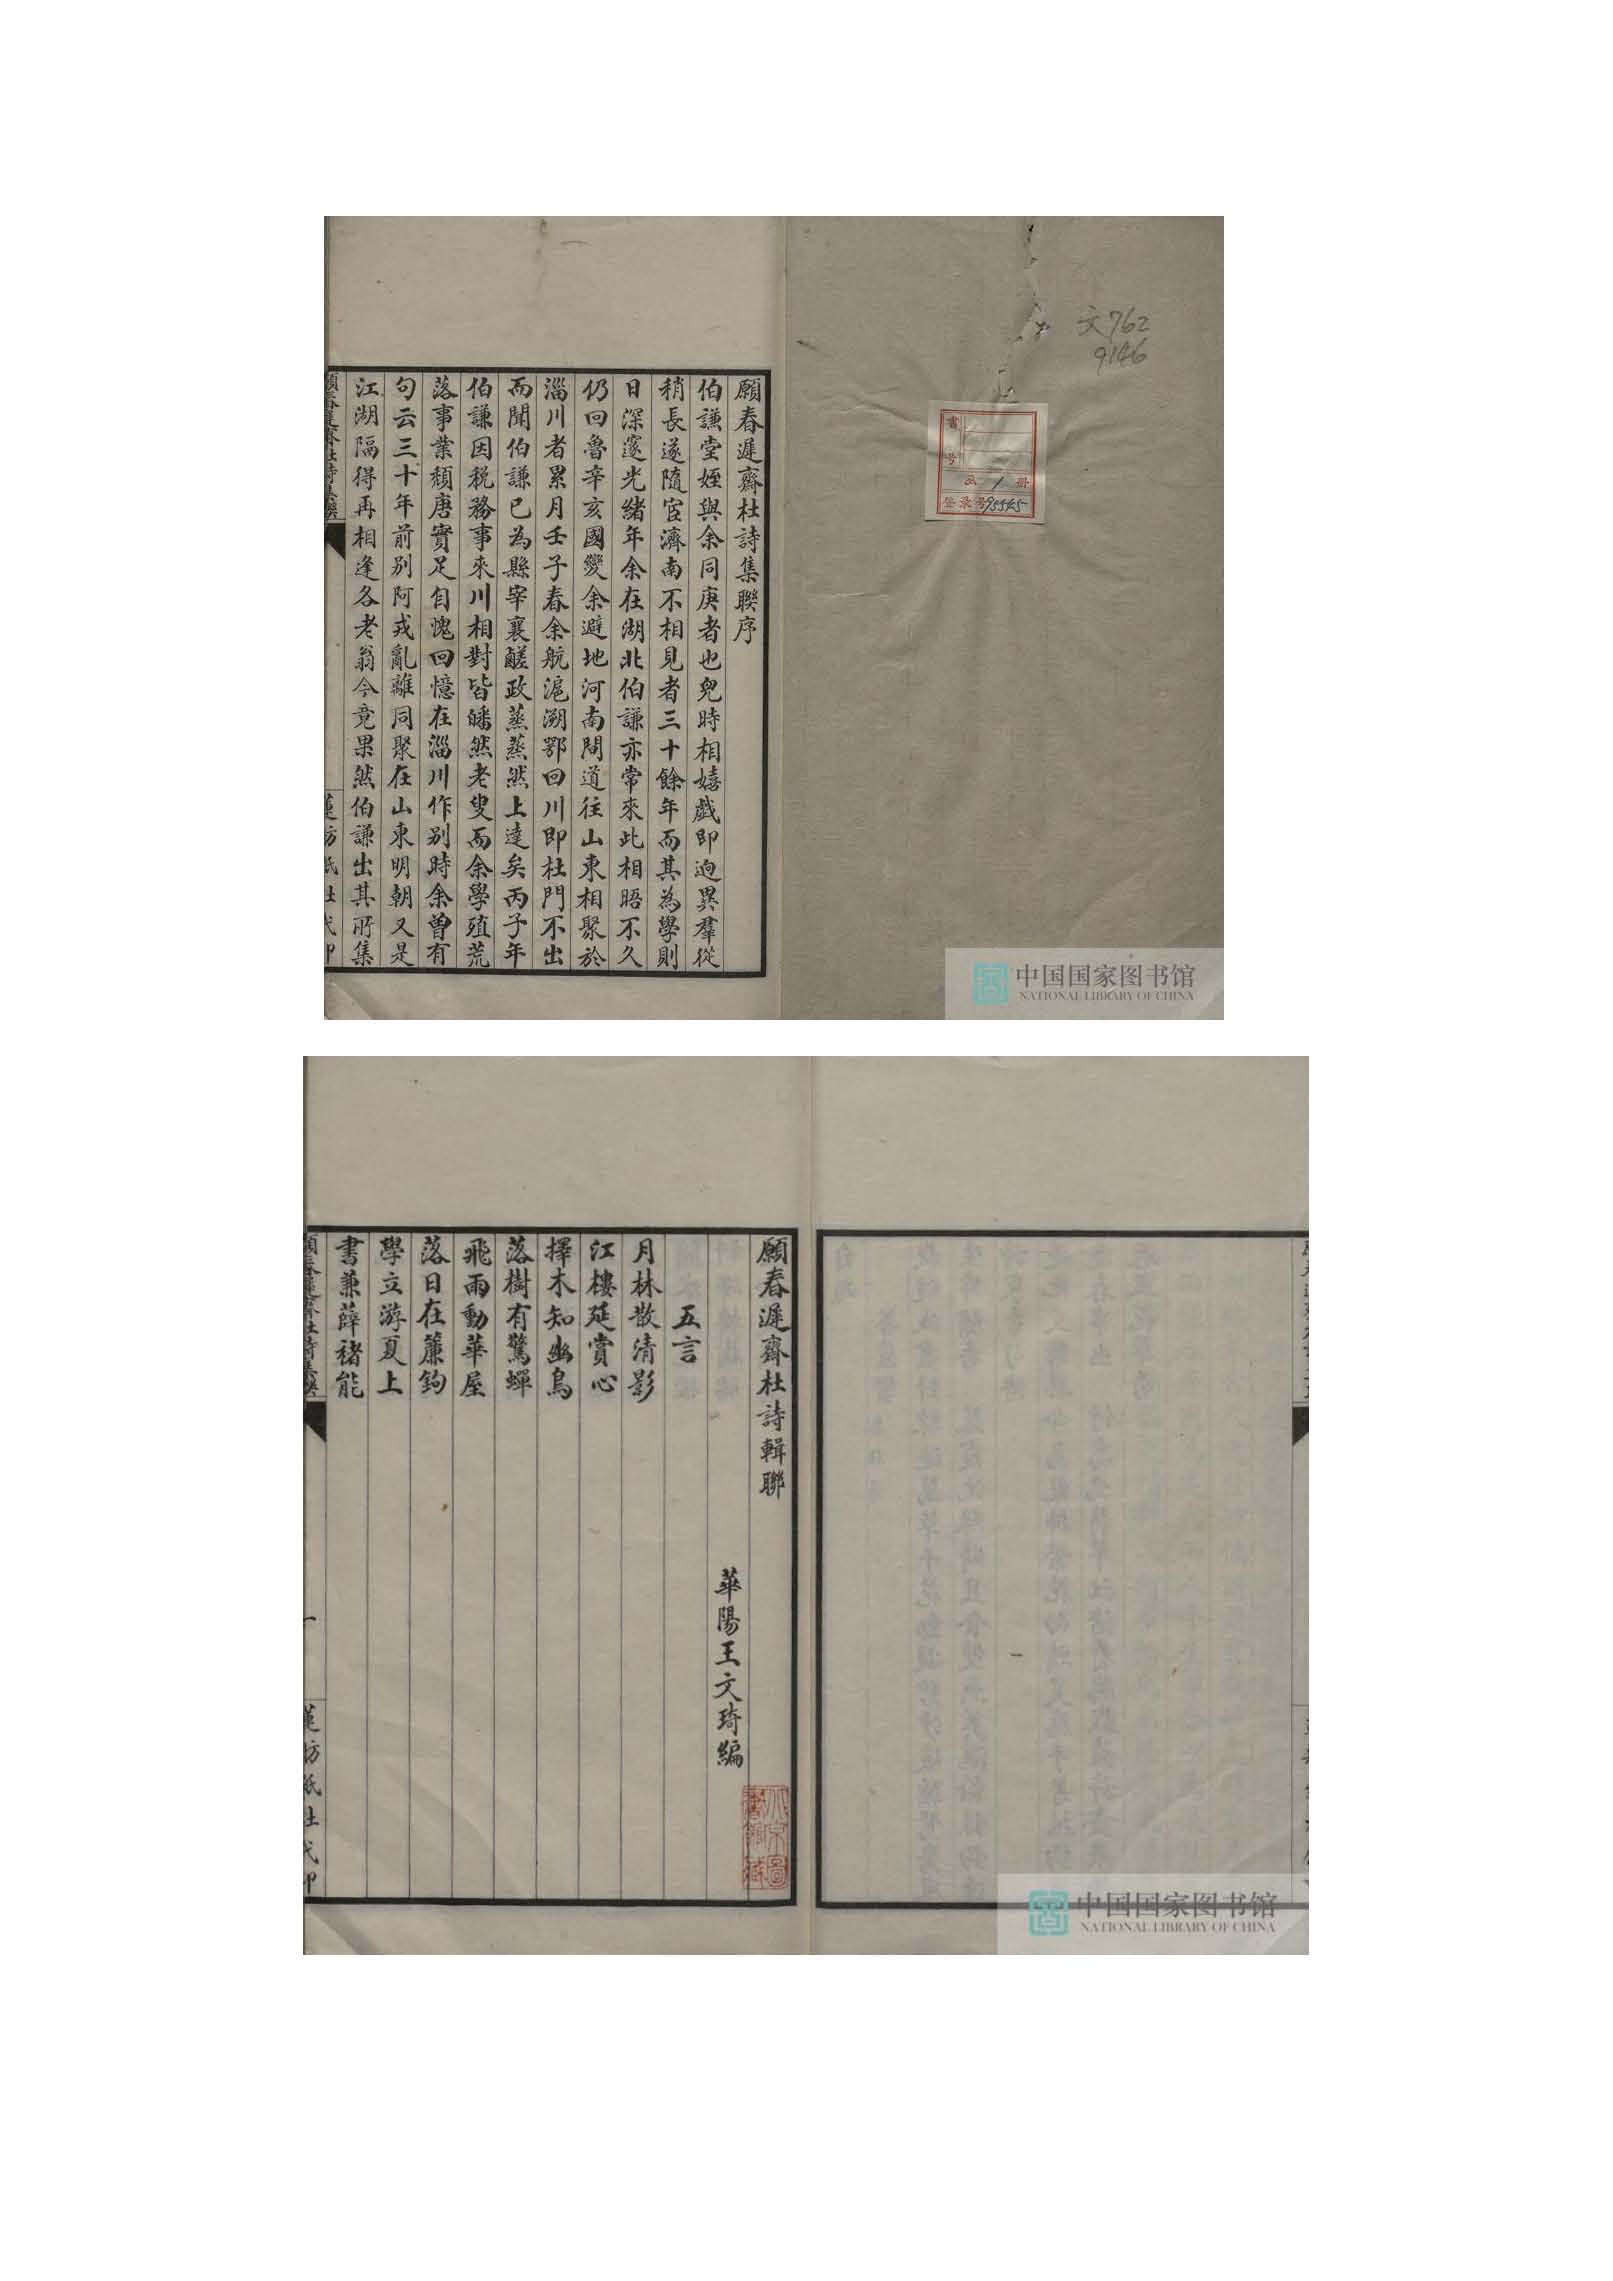 文762
9146
書
号
共1册
登录号95545
願春遲齋杜詩集聯序
伯謙堂姪與余同庚者也兒時相嬉戲即迥異羣從
稍長遂隨宦濟南不相見者三十餘年而其為學則
日深邃光緒年余在湖北伯謙亦常來此相晤不久
仍回魯辛亥國變余避地河南間道往山東相聚於
淄川者累月壬子春余航滬溯鄂回川即杜門不出
而聞伯謙已為縣宰襄鹺政蒸蒸然上達矣丙子年
伯謙因稅務事來川相對皆皤然老叟而余學殖荒
落事業頹唐實足自愧回憶在淄川作别時余曾有
句云三十年前别阿戎亂離同聚在山東明朝又是
江湖隔得再相逢各老翁今竟果然伯謙出其所集
中国国家图书馆
NATIONAL LIBRARY OF CHINA
願春遲齋杜詩輯聯
華陽王文琦編
五言
月林散清影
江樓延賞心
擇木知幽鳥
落樹有驚蟬
飛雨動華屋
落日在簾鉤
學立游夏上
書兼薛褚能
一
中国国家图书馆
NATIONAL LIBRARY OF CHINA